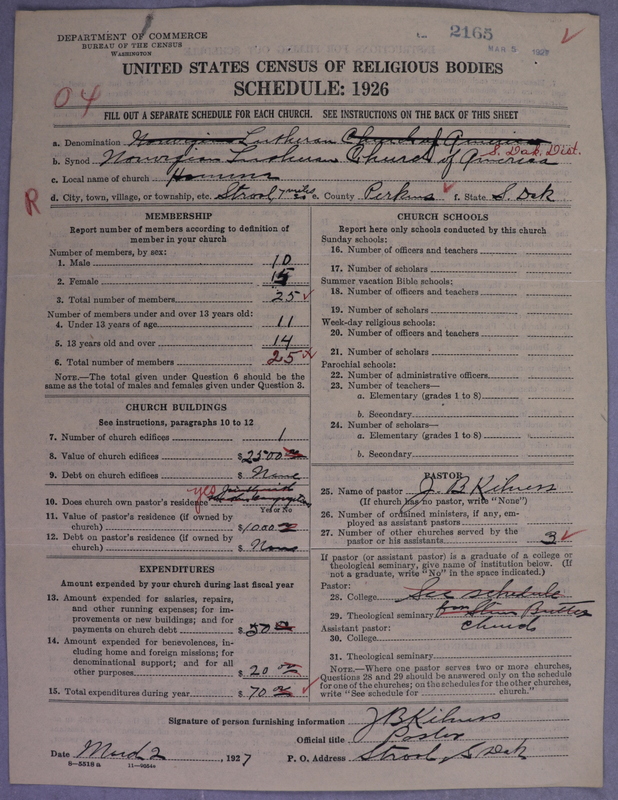 DEPARTMENT OF COMMERCE
BUREAU OF THE CENSUS
WASHINGTON
2165
MAR 5 1927
UNITED STATES CENSUS OF RELIGIOUS BODIES
SCHEDULE: 1926
04
FILL OUT A SEPARATE SCHEDULE FOR EACH CHURCH. SEE INSTRUCTIONS ON THE BACK OF THIS SHEET
a. Denomination Norwegian Lutheran Church of America
b. Synod Norwegian Lutheran Church of America S. Dak. Dist.
c. Local name of church
R
d. City, town, village, or township, etc. Strool 7 miles e. County Perkins f. State S. Dak
MEMBERSHIP
Report number of members according to definition of
member in your church
Number of members, by sex:
1. Male 10
2. Female 15
3. Total number of members 25
Number of members under and over 13 years old:
4. Under 13 years of age 11
5. 13 years old and over 14
6. Total number of members 25
NOTE.—The total given under Question 6 should be the
same as the total of males and females given under Question 3.
CHURCH BUILDINGS
See instructions, paragraphs 10 to 12
7. Number of church edifices 1
8. Value of church edifices $2500
9. Debt on church edifices $ None
yes
10. Does church own pastor's residence
Yes or No
11. Value of pastor's residence (if owned by
church) $1000
12. Debt on pastor's residence (if owned by
church) $ None
EXPENDITURES
Amount expended by your church during last fiscal year
13. Amount expended for salaries, repairs,
and other running expenses; for im-
provements or new buildings; and for
payments on church debt $ 50
14. Amount expended for benevolences, in-
cluding home and foreign missions; for
denominational support; and for all
other purposes $ 20
15. Total expenditures during year $ 70
CHURCH SCHOOLS
Report here only schools conducted by this church
Sunday schools:
16. Number of officers and teachers
17. Number of scholars
Summer vacation Bible schools:
18. Number of officers and teachers
19. Number of scholars
Week-day religious schools:
20. Number of officers and teachers
21. Number of scholars
Parochial schools:
22. Number of administrative officers
23. Number of teachers—
a. Elementary (grades 1 to 8)
b. Secondary
24. Number of scholars—
a. Elementary (grades 1 to 8)
b. Secondary
PASTOR
25. Name of pastor J. B Kilness
(If church has no pastor, write "None")
26. Number of ordained ministers, if any, em-
ployed as assistant pastors
27. Number of other churches served by the
pastor or his assistants 3
If pastor (or assistant pastor) is a graduate of a college or
theological seminary, give name of institution below. (If
not a graduate, write "No" in the space indicated.)
Pastor:
28. College See schedule
29. Theological seminary for Slim Buttes
Assistant pastor: church
30. College
31. Theological seminary
NOTE.—Where one pastor serves two or more churches,
Questions 28 and 29 should be answered only on the schedule
for one of the churches; on the schedules for the other churches,
write "See schedule for church."
Signature of person furnishing information J B Kilness
Official title Pastor
Date March 2, 1927 P. O. Address Strool, S Dak
8-5518 a